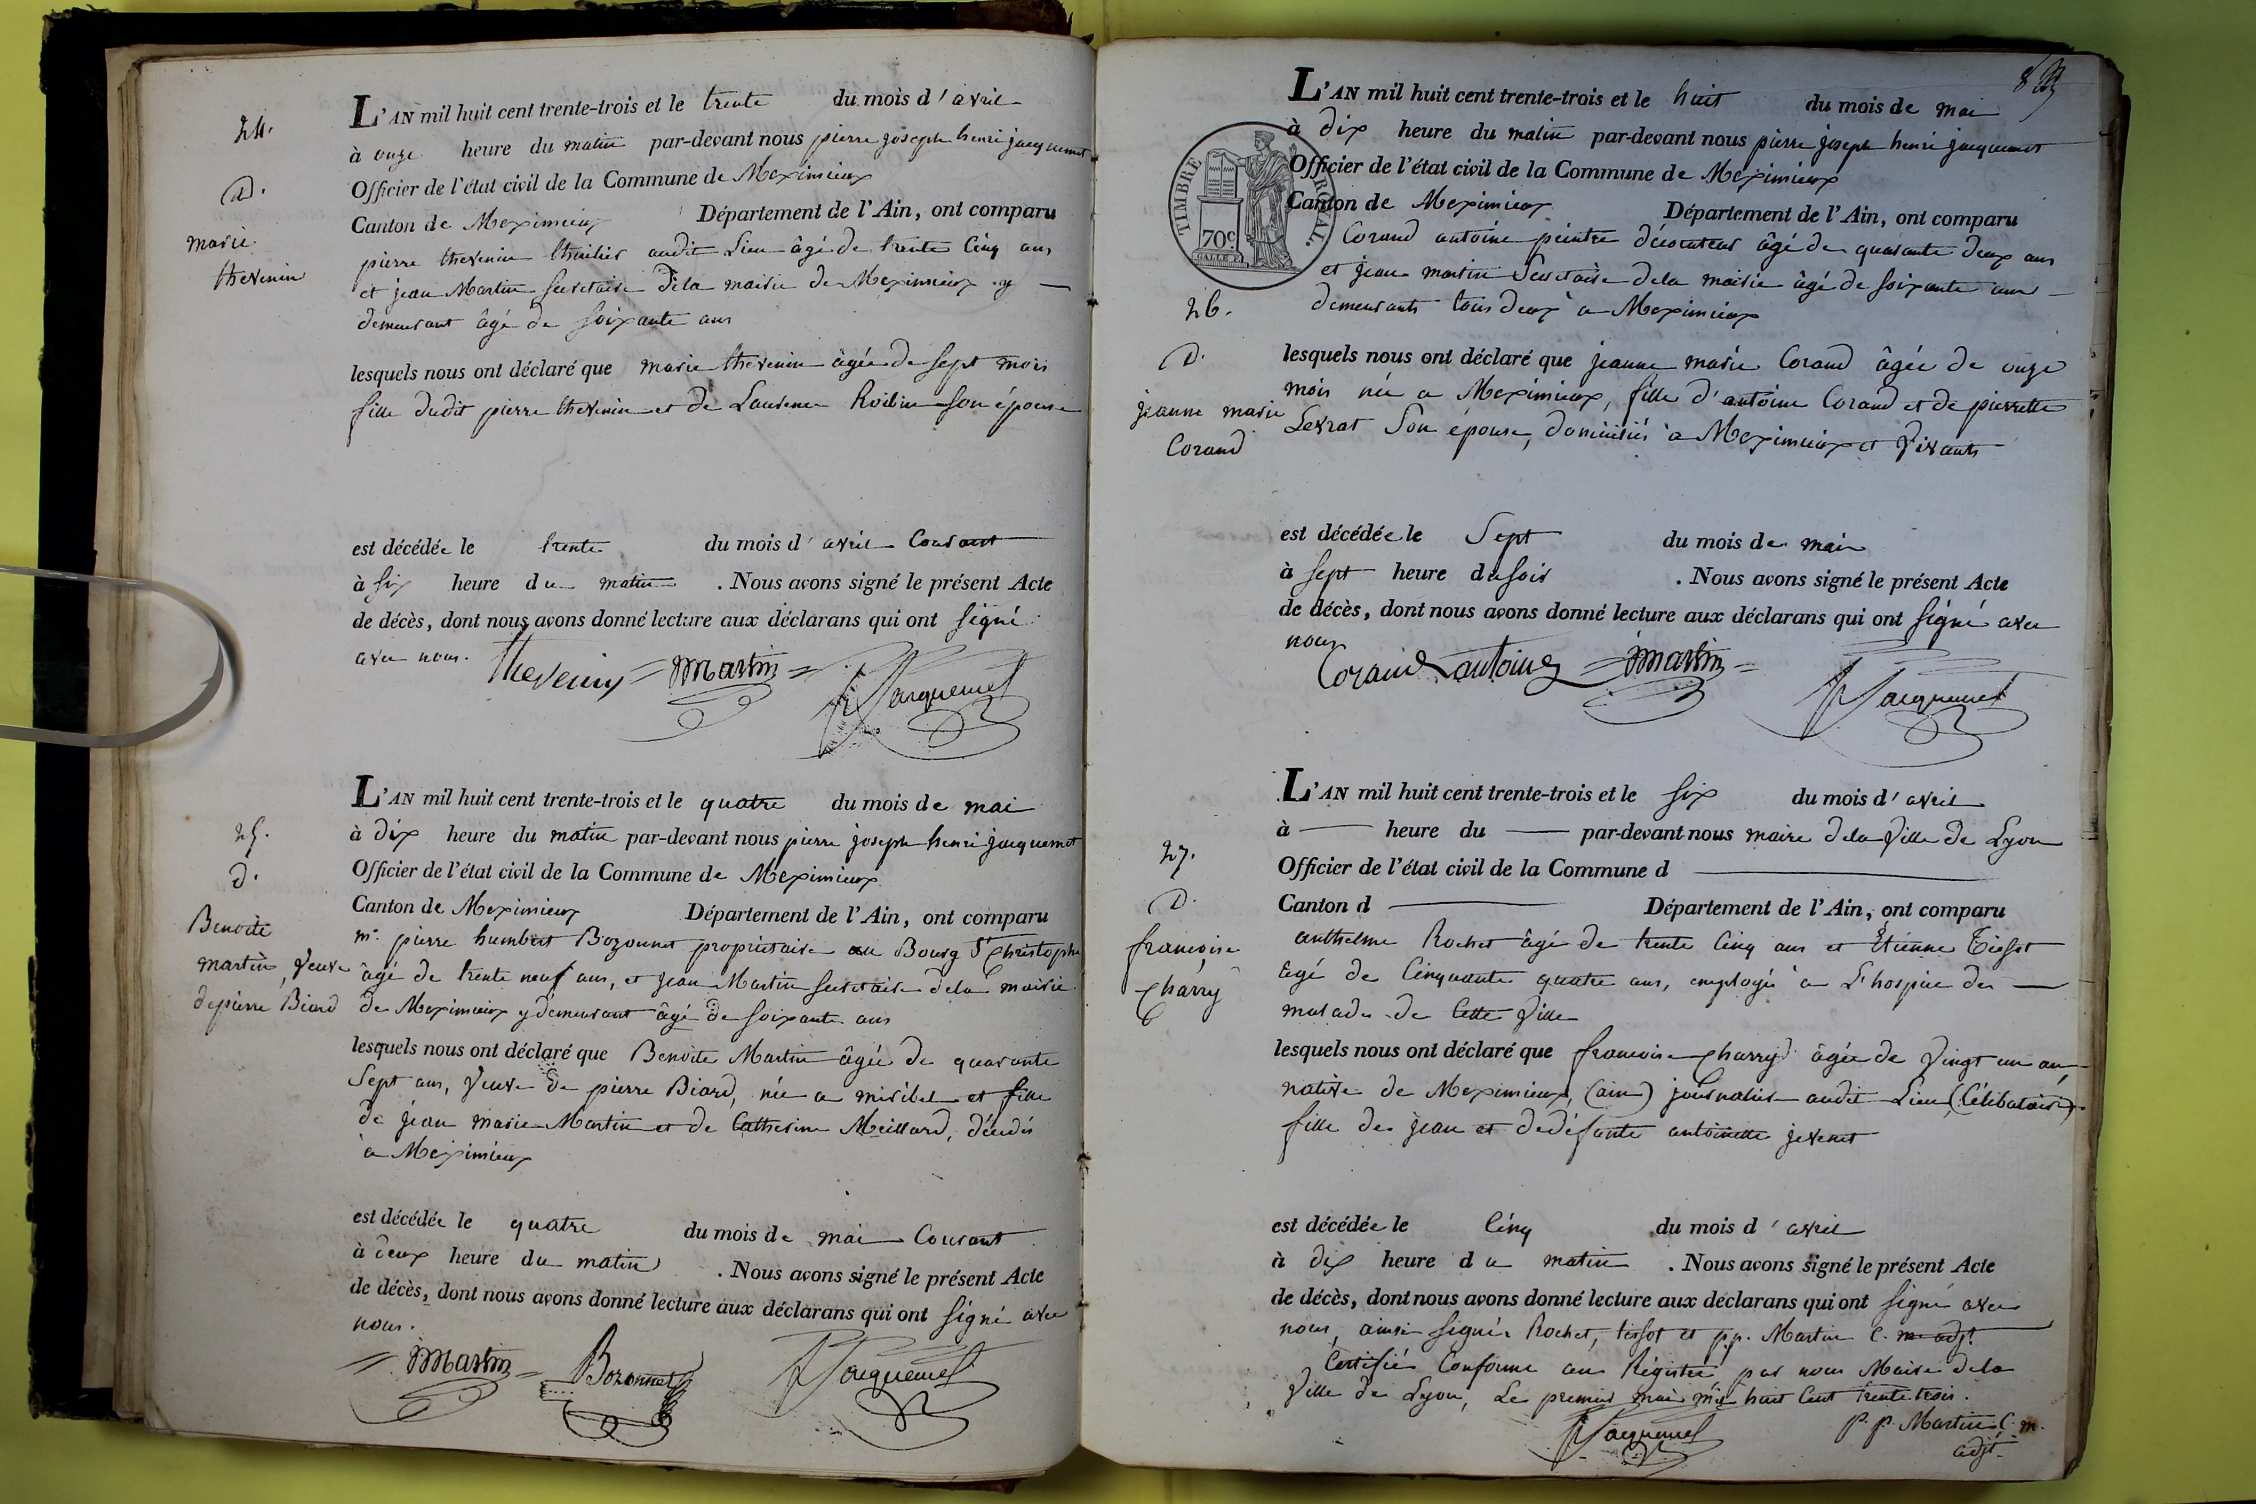 24.
D.
marie
thevenin
L'AN mil huit cent trente-trois et le trente du mois d'avril
à onze heure du matin par-devant nous pierre joseph henri jacquemet
Officier de l'état civil de la Commune de Meximieux
Canton de Meximieux Département de l'Ain, ont comparu
pierre thevenin audit Lieu âgé de trente Cinq ans
et jean Martin Secretaire dela mairie de Meximieux y
demeurant âgé de soixante ans
lesquels nous ont déclaré que marie thevenin âgée de sept mois
fille dudit pierre thevenin et de Laurence Roibin son épouse
est décédée le trente du mois d'avril Courant
à six heure du matin . Nous avons signé le présent Acte
de décès, dont nous avons donné lecture aux déclarans qui ont signé
avec nous.
thevenin Martin Jacquemet
25.
d.
Benoite
martin, veuve
de pierre Biard
L'AN mil huit cent trente-trois et le quatre du mois de mai
à dix heure du matin par-devant nous pierre joseph henri jacquemet
Officier de l'état civil de la Commune de Meximieux
Canton de Meximieux Département de l'Ain, ont comparu
mr. pierre humbert Bozonnet propriétaire au Bourg St Christophe
âgé de trente neuf ans, et jean Martin secretaire dela mairie
de Meximieux y demeurant âgé de soixante ans
lesquels nous ont déclaré que Benoite Martin âgée de quarante
Sept ans, veuve de pierre Biard, née a miribel et fille
de jean marie Martin et de Catherine Meillard, décédés
à Meximieux
est décédée le quatre du mois de mai Courant
à deux heure du matin . Nous avons signé le présent Acte
de décès, dont nous avons donné lecture aux déclarans qui ont signé avec
nous.
Martin Bozonnet Jacquemet
8
TIMBRE ROYAL.
70c
26.
D.
jeanne marie
Corand
L'AN mil huit cent trente-trois et le huit du mois de mai
à dix heure du matin par-devant nous pierre joseph henri jacquemet
Officier de l'état civil de la Commune de Meximieux
Canton de Meximieux Département de l'Ain, ont comparu
Corand antoine peintre décorateur âgé de quarante deux ans
et jean martin Secretaire dela mairie âgé de soixante ans
demeurants tous deux a Meximieux
lesquels nous ont déclaré que jeanne marie Corand âgée de onze
mois née a Meximieux, fille d'antoine Corand et de pierrette
Levrat Son épouse, domiciliés à Meximieux et vivants
est décédée le Sept du mois de mai
à sept heure du soir . Nous avons signé le présent Acte
de décès, dont nous avons donné lecture aux déclarans qui ont signé avec
nous
Corand antoine Martin Jacquemet
27.
D.
francoise
Charry
L'AN mil huit cent trente-trois et le six du mois d'avril
à heure du par-devant nous maire dela Ville de Lyon
Officier de l'état civil de la Commune d
Canton d Département de l'Ain, ont comparu
anthelme Rochet âgé de trente Cinq ans et Etienne Tissot
âgé de Cinquante quatre ans, employés à L'hospice des
malades de Cette Ville
lesquels nous ont déclaré que francoise Charry âgée de vingt un an
native de Meximieux, (ain) journalière audit Lieu (Célibataire)
fille de jean et de défunte antoinette jevenet
est décédée le Cinq du mois d'avril
à dix heure du matin . Nous avons signé le présent Acte
de décès, dont nous avons donné lecture aux déclarans qui ont signé avec
nous, ainsi signés Rochet, tissot et p.p. Martin C. m. adjt.
Certifié Conforme au Régistre par nous Maire dela
Ville de Lyon, Le premier mai mil huit Cent trente-trois.
Jacquemet
p. p. Martin C. m.
adjt.